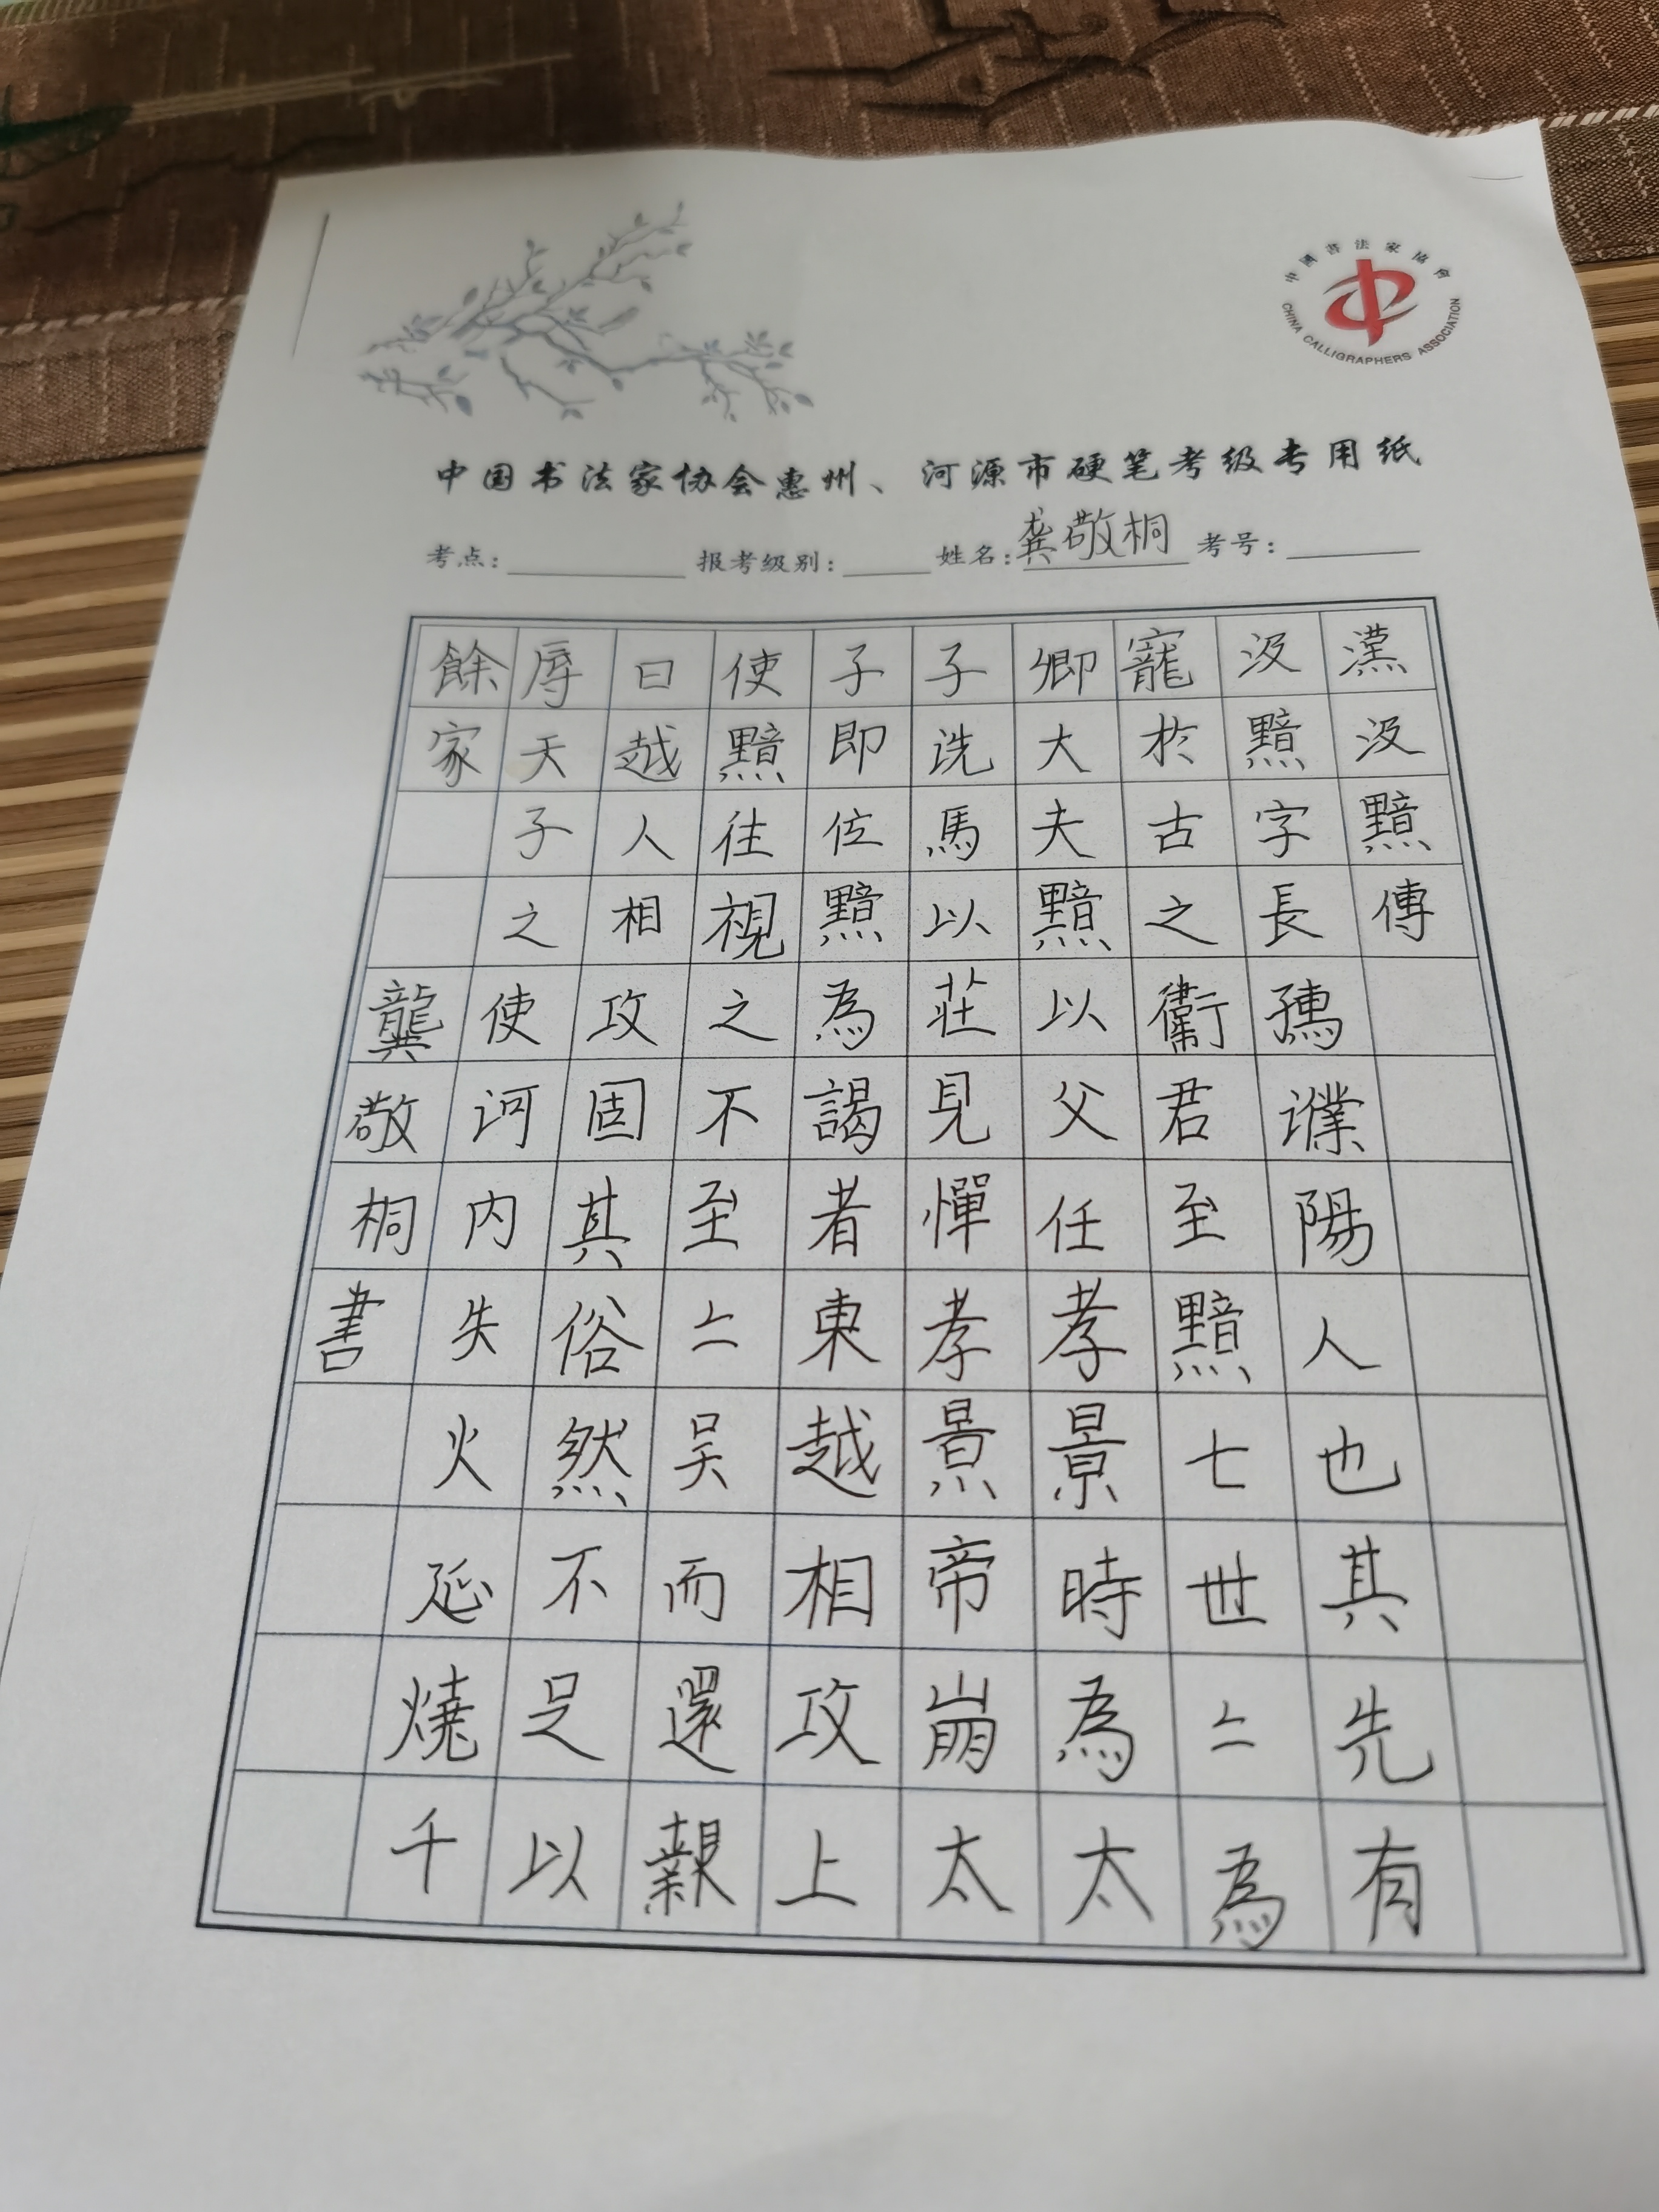 中國書法家協會
CHINA CALLIGRAPHERS ASSOCIATION
中国书法家协会惠州、河源市硬笔考级专用纸
考点: 报考级别: 姓名: 龚敬桐 考号:
漢汲黯傳
汲黯字長孺濮陽人也其先有
寵於古之衞君至黯七世〻為
卿大夫黯以父任孝景時為太
子洗馬以莊見憚孝景帝崩太
子即位黯為謁者東越相攻上
使黯往視之不至〻吳而還報
曰越人相攻固其俗然不足以
辱天子之使河内失火延燒千
餘家 龔敬桐書